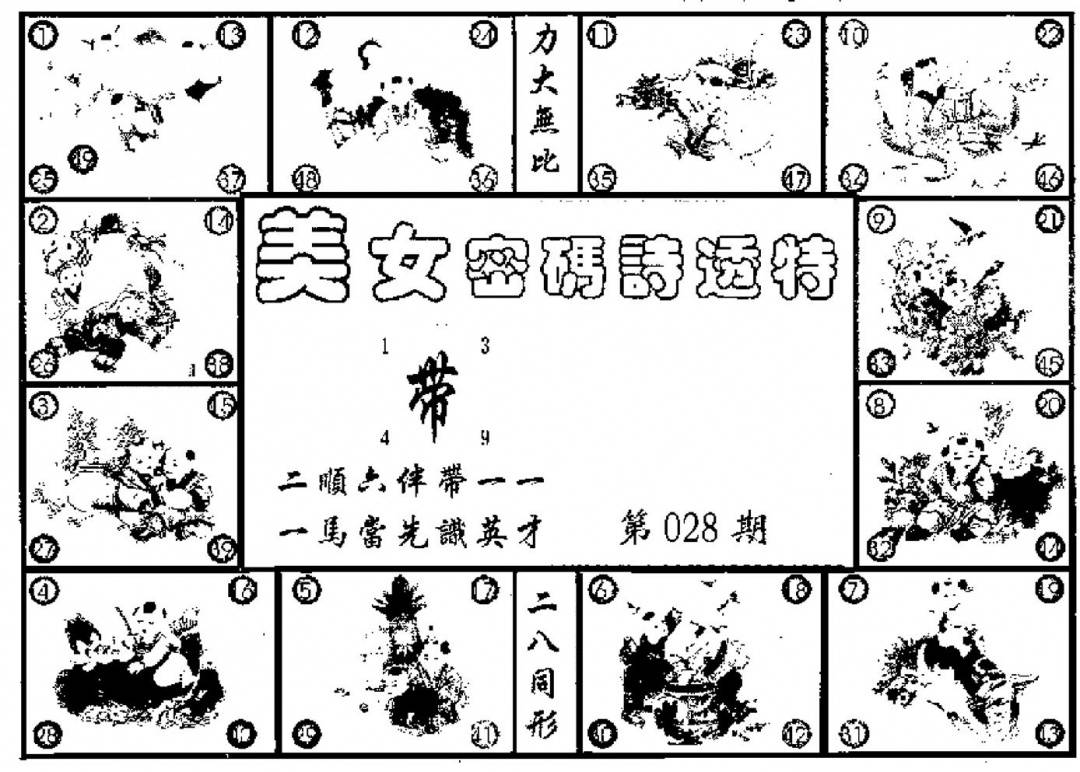 ① ⑬ ⑫ ㉔ ⑪ ㉓ ⑩ ㉒
力大無比
㊾
㉕ ㊲ ㊽ ㊱ ㉟ ㊼ ㉞ ㊻
② ⑭ ⑨ ㉑
美女密碼詩透特
㉖ ㊳ ㉝ ㊺
1 3
带
4 9
③ ⑮ ⑧ ⑳
二順六伴帶一一
一馬當先識英才 第028期
㉗ ㊴ ㉜ ㊹
④ ⑯ ⑤ ⑰ ⑥ ⑱ ⑦ ⑲
二八同形
㉘ ㊵ ㉙ ㊶ ㊷ ㉛ ㊸